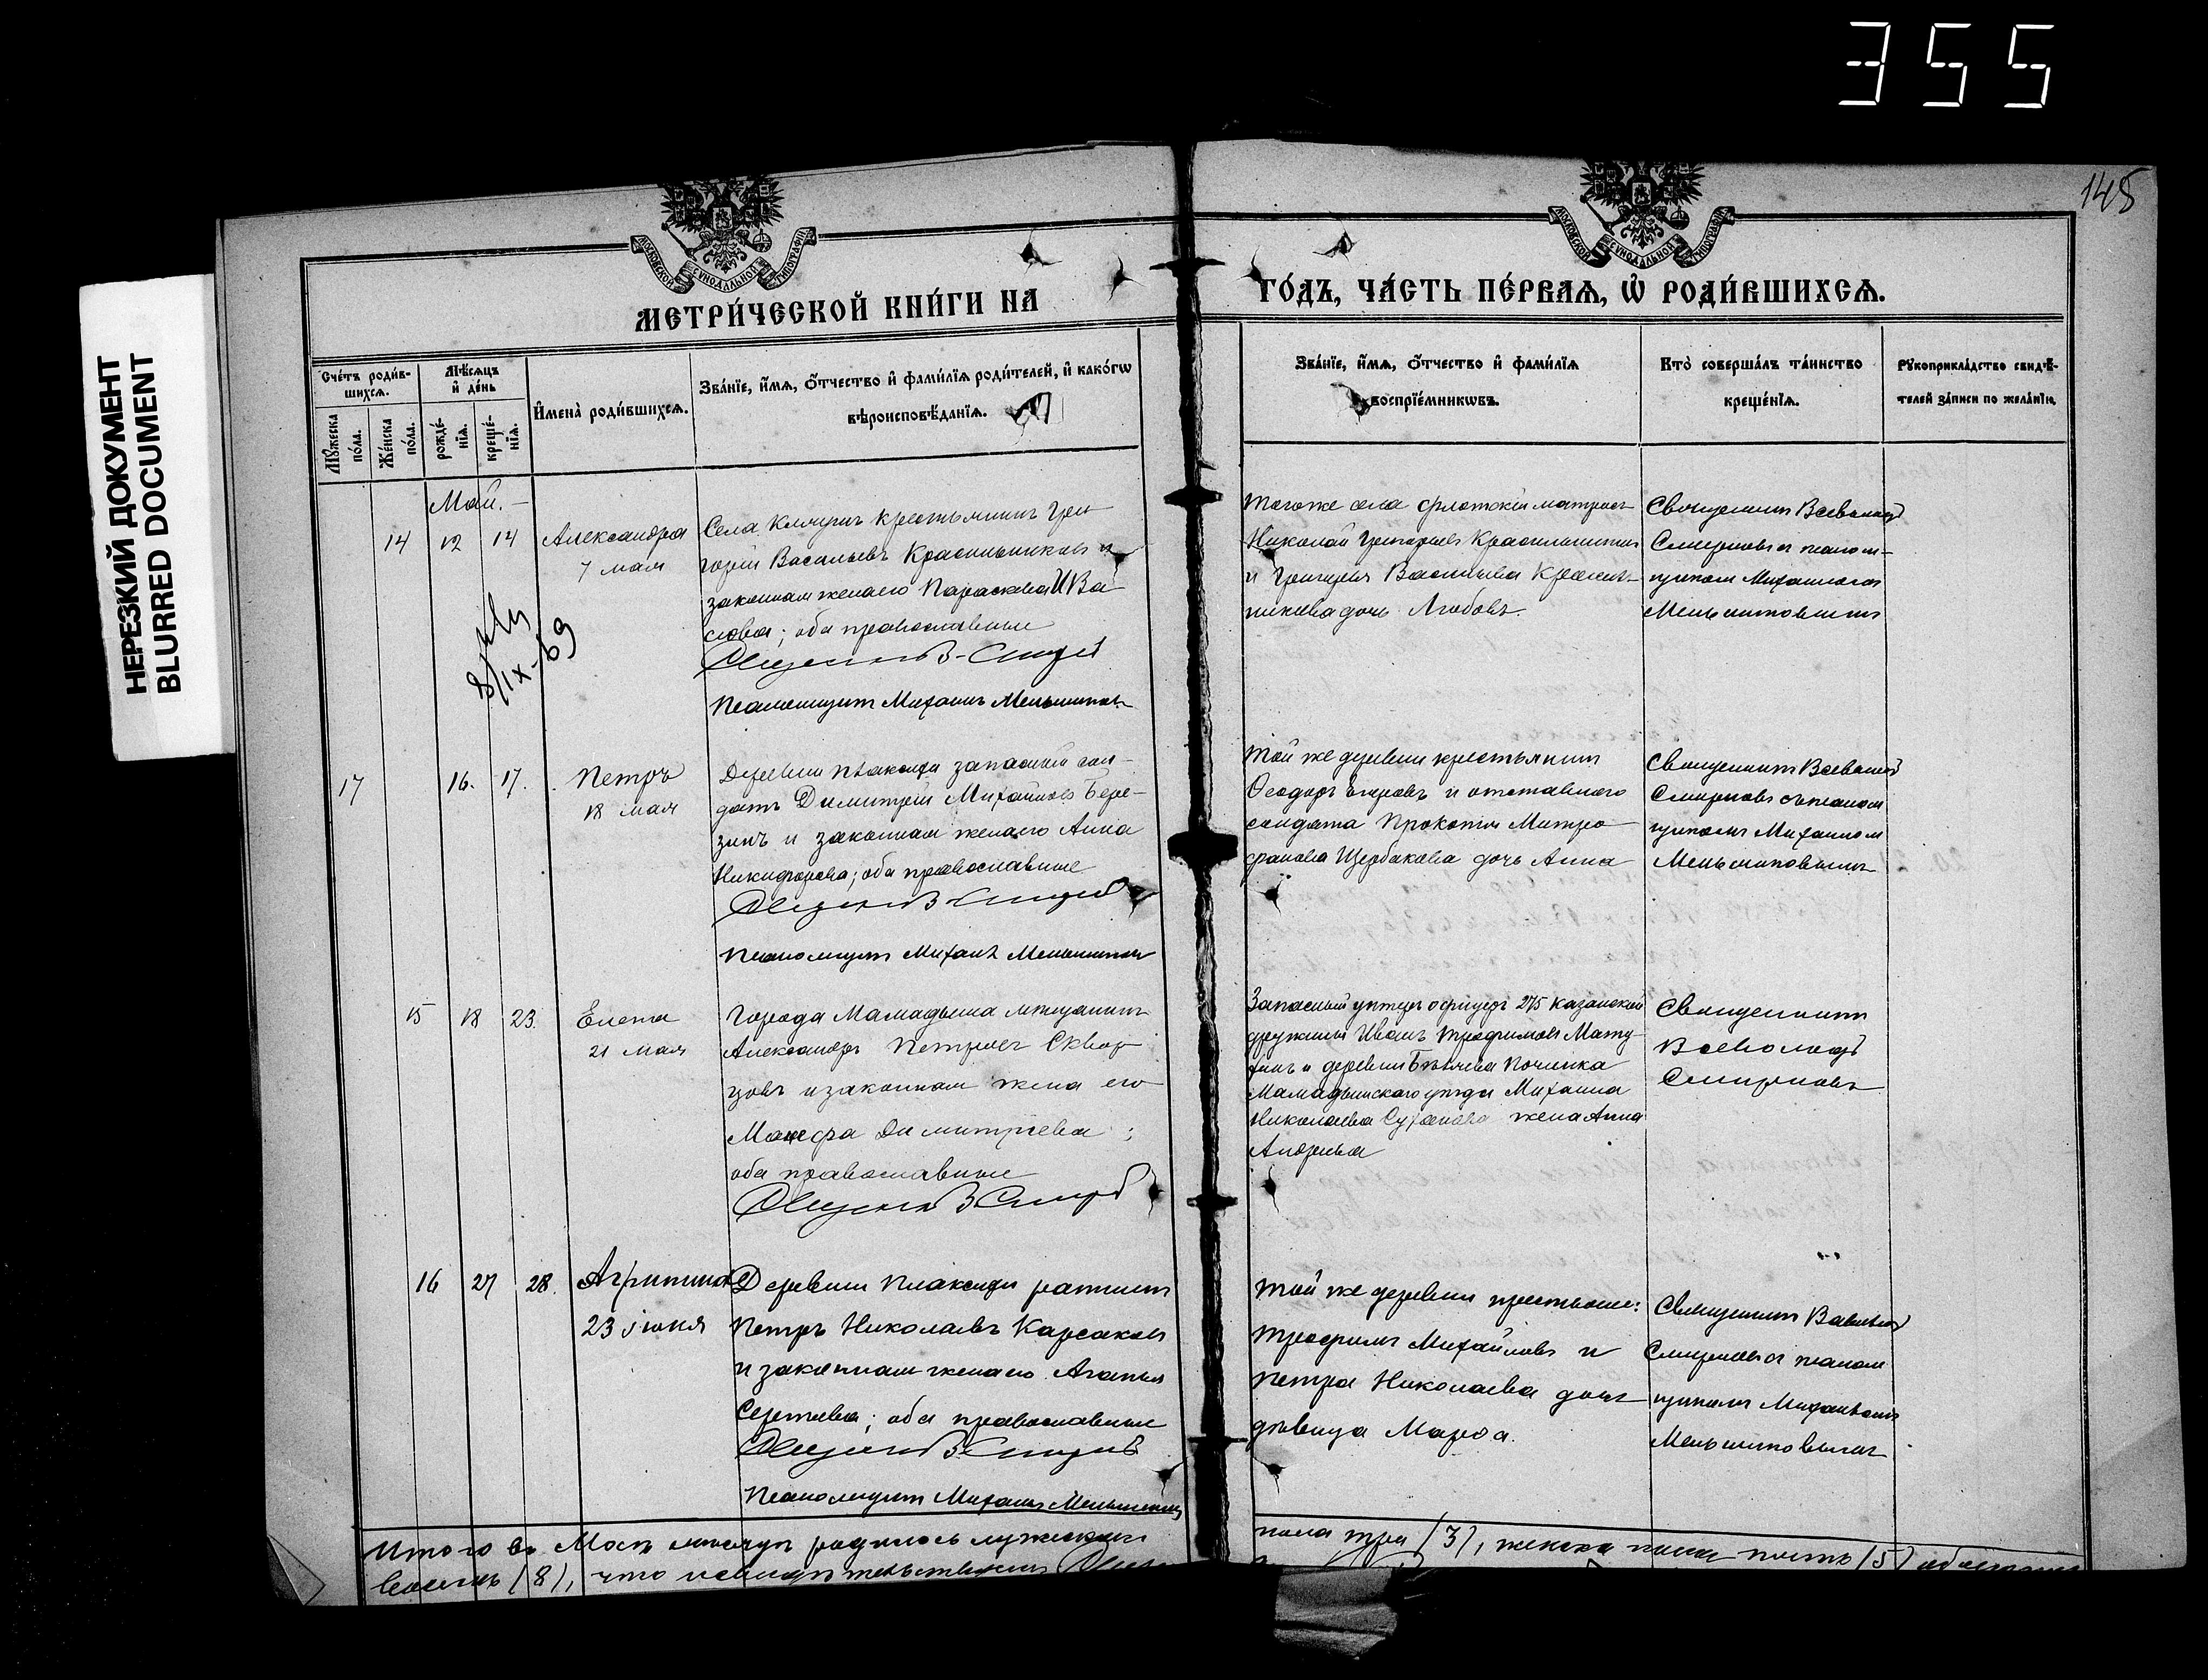 355
НЕРЕЗКИЙ ДОКУМЕНТ
BLURRED DOCUMENT
148
МОСКОВСКОЙ СѴНОДАЛЬНОЙ ТИПОГРАФІИ
МОСКОВСКОЙ СѴНОДАЛЬНОЙ ТИПОГРАФІИ
МЕТРИ́ЧЕСКОЙ КНИ́ГИ НА
ГО́ДЪ, ЧА́СТЬ ПЕ́РВАѦ, Ѡ҆ РОДИ́ВШИХСѦ.
Сче́тъ роди́в-
шихсѧ.
Мꙋжеска
по́ла.
Же́нска
по́ла.
Мѣ́сѧцъ
и҆ де́нь
рожде́-
нїѧ.
креще́-
нїѧ.
И҆мена̀ роди́вшихсѧ.
Зва́нїе, и҆́мѧ, ѻ҆́тчество и҆ фами́лїѧ роди́телей, и҆ како́гѡ
вѣроисповѣ́данїѧ.
Зва́нїе, и҆́мѧ, ѻ҆́тчество и҆ фами́лїѧ
воспрїе́мникѡвъ.
Кто̀ соверша́лъ та́инство
креще́нїѧ.
Рꙋкоприкла́дство свидѣ́-
телей за́писи по жела́нїю.
Май. –
14 12 14 Александра
7 мая
Села крестьянинъ Гри-
горій Васильевъ Красильниковъ и
законная жена его Параскева Ива
нова; оба православные
Псаломщикъ Михаилъ Меньшиковъ
Того же села флотскій матросъ
Николай Григорьевъ Красильниковъ
и Григорія Васильева Красиль-
никова дочь Любовь
Священникъ Всеволодъ
Смирновъ съ псалом-
щикомъ Михаиломъ
Меньшиковымъ
IX-69
17 16. 17. Петръ
18 мая
Деревни запасный сол-
датъ Димитрій Михайловъ Бере-
зинъ и законная жена его Анна
Никифорова; оба православные
Псаломщикъ Михаилъ Меньшиковъ
Той же деревни крестьянинъ
Ѳеодоръ и отставного
солдата Прокопія Митро
фанова Щербакова дочь Анна
Священникъ Всеволодъ
Смирновъ съ псалом
щикомъ Михаиломъ
Меньшиковымъ
15 18 23. Елена
21 мая
Города Мамадыша мѣщанинъ
Александръ Петровъ Сквор
цовъ и законная жена его
Димитріева;
оба православные
Запасный унтеръ офицеръ 275 Казанской
дружины Иванъ Трофимовъ
и деревни Починка
Мамадышскаго уѣзда Михаила
Николаева Суханова жена Анна
Андреева
Священникъ
Всеволодъ
Смирновъ
16 27 28. Агрипина
23 іюня
Деревни ратникъ
Петръ Николаевъ Карсаковъ
и законная жена его Агапія
Сергѣева; оба православные
Псаломщикъ Михаилъ Меньшиковъ
Той же деревни крестьяне:
Трофимъ Михайловъ и
Петра Николаева дочь
дѣвица Марѳа.
Священникъ Всеволодъ
Смирновъ съ псалом
щикомъ Михаиломъ
Меньшиковымъ
Итого въ Маѣ мѣсяцѣ родилось мужескаго
пола три (3), женска пола пять (5) обоего пола
восемь (8), что и свидѣтельствуемъ